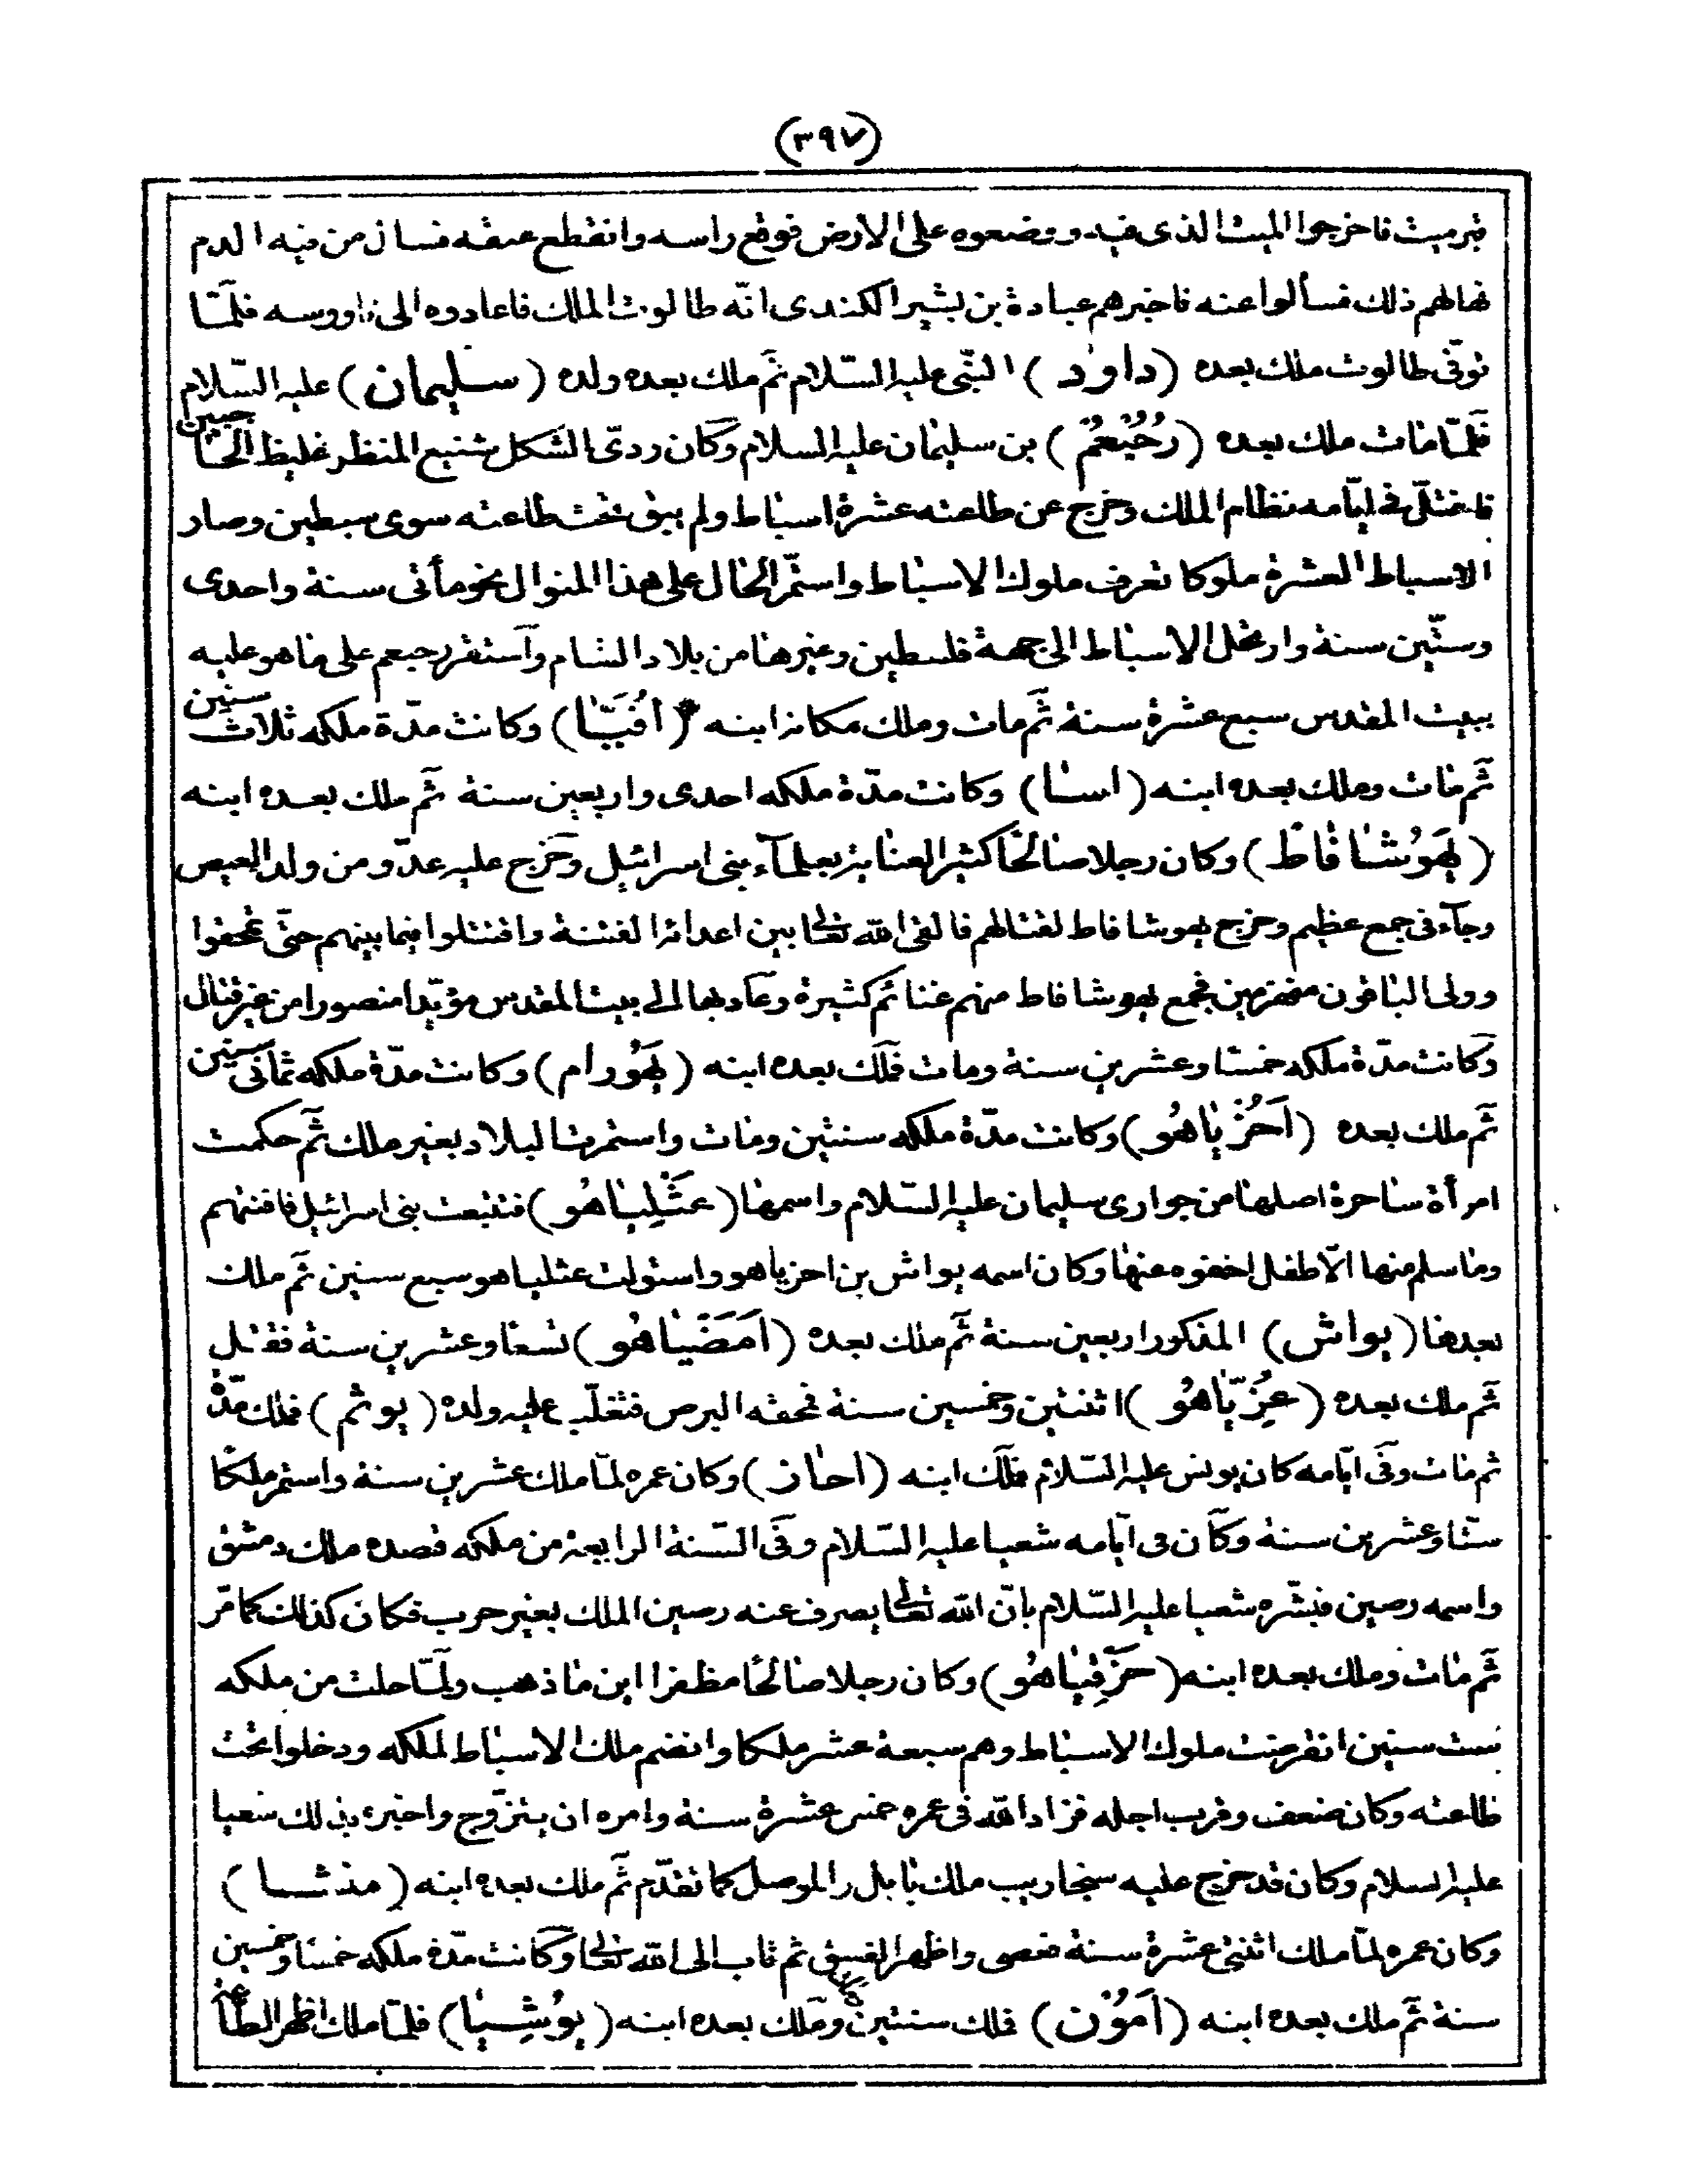 (٣٩٧)
قبر ميت فاخرجوا الميت الذى فيه ووضعوه على الارض فوقع راسه وانقطع عنقه فسال من فيه الدم
فهالهم ذلك فسألوا عنه فاخبرهم عبادة بن بشير الكندى انّه طالوت الملك فاعادوه الى ناووسه فلمّا
توفّى طالوت ملك بعده (داود) النّبى عليه السّلام ثمّ ملك بعده ولده (سليمان) عليه السّلام
فلمّا مات ملك بعده (رُحُبْعُمْ) بن سليمان عليه السلام وكان ردىّ الشكل شنيع المنظر غليظ الحاجبين
فاختلّ فى ايّامه نظام الملك وخرج عن طاعته عشرة اسباط ولم يبق تحت طاعته سوى سبطين وصار
الاسباط العشرة ملوكا تعرف ملوك الاسباط واستمرّ الحال على هذا المنوال نحو مأتى سنة واحدى
وستّين سنة وارتحل الاسباط الى جهة فلسطين وغيرها من بلاد الشام واستقر رحبعم على ما هو عليه
ببيت المقدس سبع عشرة سنة ثمّ مات وملك مكانه ابنه (افُيَّا) وكانت مدّة ملكه ثلاث سنين
ثمّ مات وملك بعده ابنه (اسا) وكانت مدّة ملكه احدى واربعين سنة ثمّ ملك بعده ابنه
(يَهَوُشافاط) وكان رجلا صالحًا كثير العناية بعلمآء بنى اسرائيل وخرج عليه عدّو من ولد العيص
وجآء فى جمع عظيم وخرج يهوشافاط لقتالهم فالقى الله تعالى بين اعدائه الفتنة واقتتلوا فيما بينهم حتّى محقوا
وولى الباقون منهزمين فجمع يهوشافاط منهم غنائم كثيرة وعاد بها الى بيت المقدس مؤيّدا منصورا من غير قتال
وكانت مدّة ملكه خمسًا وعشرين سنة ومات فملك بعده ابنه (يَهَوُرام) وكانت مدّة ملكه ثمانى سنين
ثمّ ملك بعده (اَحُزْياهُو) وكانت مدّة ملكه سنتين ومات واستمرت البلاد بغير ملك ثمّ حكمت
امرأة ساحرة اصلها من جوارى سليمان عليه السّلام واسمها (عَثْلِياهُو) فتتبعت بنى اسرائيل فافنتهم
وما سلم منها الّا طفل اخفوه عنها وكان اسمه يواش بن احزياهو واستولت عثلياهو سبع سنين ثمّ ملك
بعدها (يواش) المذكور اربعين سنة ثمّ ملك بعده (اَمَضْياهُو) تسعًا وعشرين سنة فقتل
ثمّ ملك بعده (عُزِّيَّاهُو) اثنتين وخمسين سنة فلحقه البرص فتغلّب عليه ولده (يوثم) فملك مدّة
ثم مات وفى ايّامه كان يونس عليه السّلام فملك ابنه (احاز) وكان عمره لمّا ملك عشرين سنة واستمر ملكًا
ستّا وعشرين سنة وكان فى ايّامه شعيا عليه السّلام وفى السّنة الرابعة من ملكه قصده ملك دمشق
واسمه رصين فبشّره شعيا عليه السّلام بانّ الله تعالى يصرف عنه رصين الملك بغير حرب فكان كذلك كما مرّ
ثمّ مات وملك بعده ابنه (حَزْقِياهُو) وكان رجلا صالحًا مظفرا اين ما ذهب ولمّا حلت من ملكه
ست سنين انقرضت ملوك الاسباط وهم سبعة عشر ملكا وانضم ملك الاسباط لملكه ودخلوا تحت
طاعته وكان ضعف وقرب اجله فزاد الله فى عمره خمس عشرة سنة وامره ان يتزوّج واخبره بذلك شعيا
عليه السلام وكان قد خرج عليه سنجاريب ملك بابل والموصل كما تقدّم ثمّ ملك بعده ابنه (منشا)
وكان عمره لمّا ملك اثنتى عشرة سنة فعصى واظهر الفسق ثم تاب الى الله تعالى وكانت مدّة ملكه خمسًا وخمسين
سنة ثمّ ملك بعده ابنه (اَمُوْن) فملك سنتين وملك بعده ابنه (يوُشِيا) فلمّا ملك اظهر الطّاعة